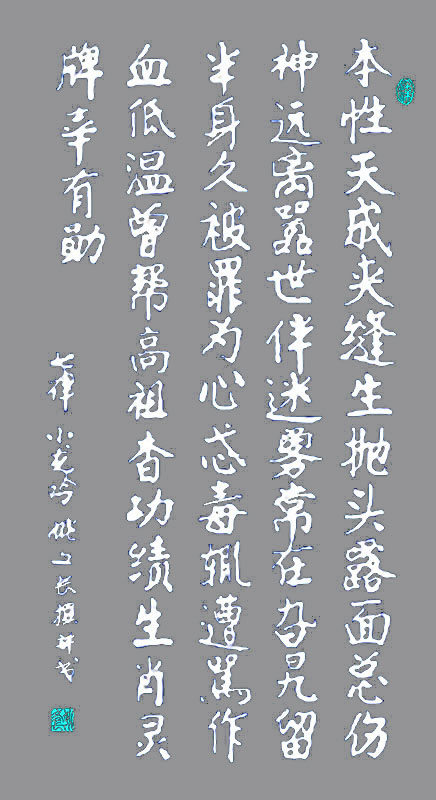 本性天成夹缝生抛头露面总伤
神远离嚣世伴迷雾常在旮旯留
半身久被罪为心忒毒辄遭骂作
血低温曾帮高祖查功绩生肖灵
牌幸有勋
七律 小龙吟 长撰并书